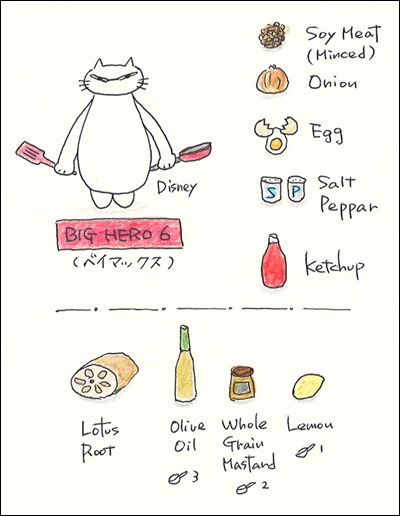 Soy Meat
(Minced)
Onion
Egg
Disney
S P
Salt
Peppar
BIG HERO 6
(ベイマックス)
Ketchup
Lotus
Root
Olive
Oil
3
Whole
Grain
Mastard
2
Lemon
1